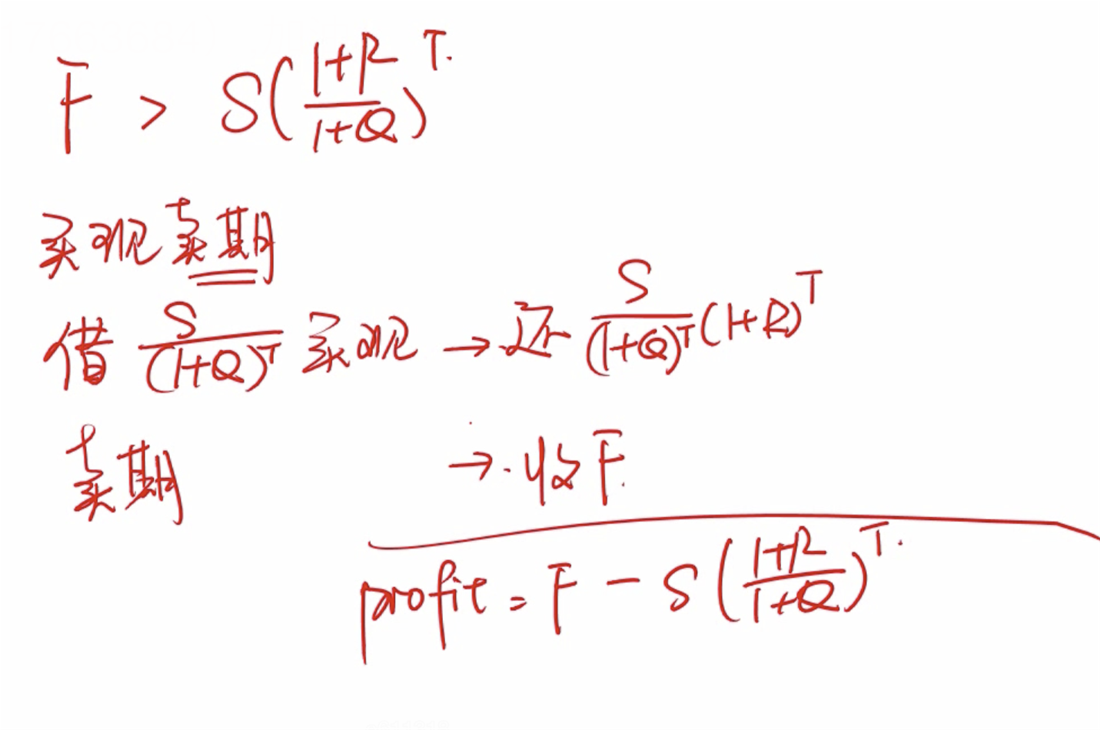 F > S(\frac{1+R}{1+Q})^T.
买现卖期
借 \frac{S}{(1+Q)^T} 买现 → 还 \frac{S}{(1+Q)^T}(1+R)^T
卖期 → 收F.
profit = F - S(\frac{1+R}{1+Q})^T.